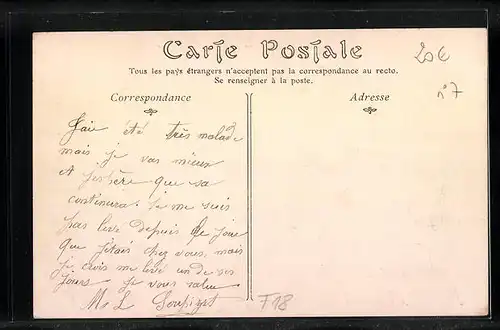 Carte Postale
20€
Tous les pays étrangers n'acceptent pas la correspondance au recto.
Se renseigner à la poste.
n°7
Correspondance
Adresse
J'ai été très malade
mais je vas mieux
et j'espère que sa
continuera. Je me suis
pas levé depuis le jour
que j'étais chez vous, mais
je crois me levé un de ses
jours je vous
M. L.
F18